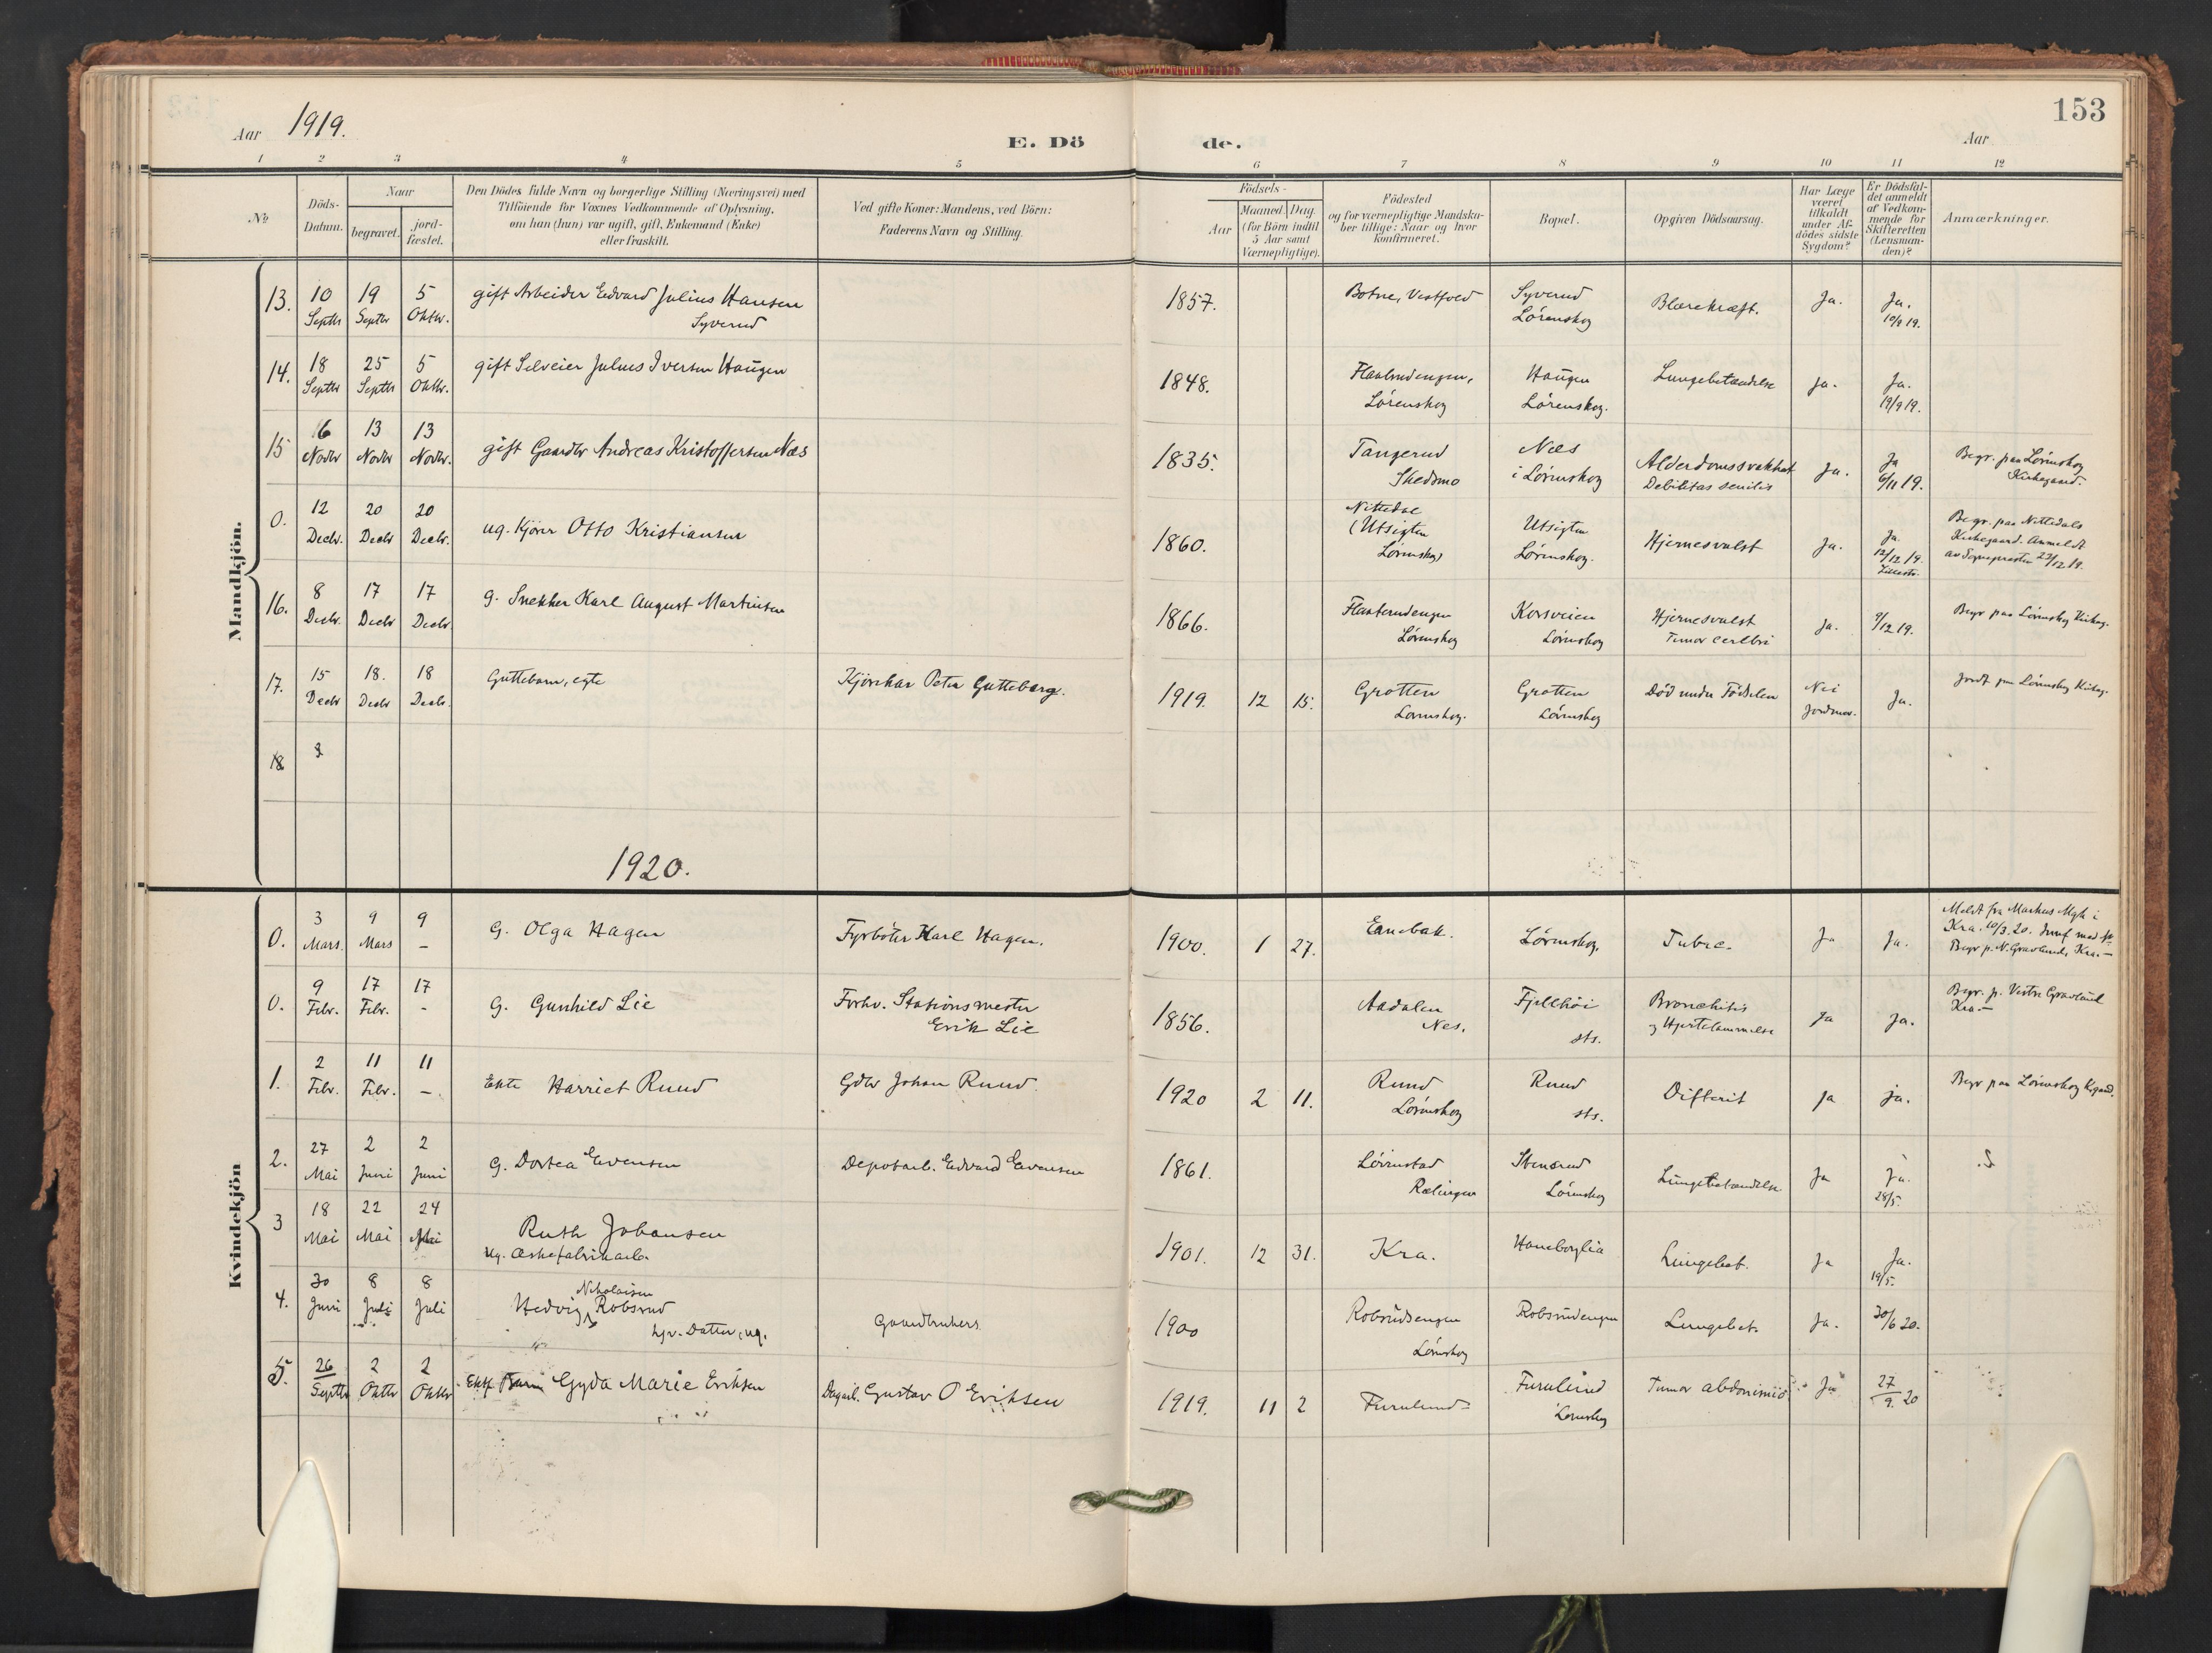 153
Aar 1919.
E. Dö de.
Aar
1 2 3 4 5 6 7 8 9 10 11 12
No
Döds-Datum.
Naar
begravet.
jord-fæstet.
Den Dödes fulde Navn og borgerlige Stilling (Næringsvei) med
Tilföiende for Voxnes Vedkommende af Oplysning,
om han (hun) var ugift, gift, Enkemand (Enke)
eller fraskilt.
Ved gifte Koner: Mandens, ved Börn:
Faderens Navn og Stilling.
Födsels-
Aar
Maaned. Dag.
(for Börn indtil
5 Aar samt
Værnepligtige).
Födested
og for værnepligtige Mandsku-
ber tillige: Naar og hvor
konfirmeret.
Bopæl.
Opgiven Dödsaarsag.
Har Læge
været
tilkaldt
under Af-
dödes sidste
Sygdom?
Er Dödsfal-
det anmeldt
af Vedkom-
mende for
Skifteretten
(Lensman-
den)?
Anmærkninger.
Mandkjön.
13. 10 Septbr 19 Septbr 5 Oktbr. gift Arbeider Edvard Julius Hansen Syverud 1857. Botne, Vestfold Syverud Lörenskog Blærekræft. Ja. Ja. 10/9 19.
14. 18 Septbr 25 Septbr 5 Oktbr. gift Selveier Julius Iversen Haugen 1848. Lörenskog Haugen Lörenskog. Lungebetændelse Ja. Ja. 19/9 19.
15 6 Novbr 13 Novbr 13 Novbr. gift Gaardbr Andreas Kristoffersen Næs 1835. Tangerud Skedsmo Næs i Lörenskog Alderdomssvakhet Debilitas senilis Ja. Ja 6/11 19. Begr. paa Lörenskog Kirkegaard.
0. 12 Decbr. 20 Decbr 20 Decbr. ug. Kjörer Otto Kristiansen 1860. Nittedal (Utsigten Lörenskog) Utsigten Lörenskog. Hjernesvulst Ja. Ja. 12/12 19. Begr. paa Nittedals Kirkegaard. Anmeldt av Sognepresten 23/12 19.
16. 8 Decbr. 17 Decbr 17 Decbr. g. Snekker Karl August Martinsen 1866. Lörenskog Korsveien Lörenskog Hjernesvulst Tumor cerebri Ja. 9/12 19. Begr paa Lörenskog Kirkeg.
17. 15 Decbr 18. Decbr 18 Decbr. Guttebarn, egte Kjörekar Peter Gutteberg. 1919. 12 15. Grotten Lörenskog. Grotten Lörenskog Död under Födselen Nei Jordmor. Ja. Jordf paa Lörenskog Kirkeg.
18
1920.
Kvindekjön
0. 3 Mars. 9 Mars 9 – G. Olga Hagen Fyrböter Karl Hagen. 1900. 1 27. Enebak. Lörenskog. Tubrc. Ja Ja. Meldt fra Markus Mgk i Kra. 10/3.20. Begr p. N. Gravlund, Kra.–
0. 9 Febr. 17 Febr. 17 - G. Gunhild Lie Forhv. Stationsmester Erik Lie 1856. Aadalen Nes. Fjellhöi sts. Bronchitis og Hjertelammelse Ja Ja. Begr. p. Vestre Gravlund Kra.–
1. 2 Febr. 11 Febr. 11 –. Ekte Harriet Ruud Gdbr Johan Ruud. 1920 2 11. Ruud Lörenskog Ruud sts. Difterit Ja ja. Begr paa Lörenskog Kgaard.
2. 27 Mai 2 Juni 2 Juni G. Dortea Evensen Depotarb. Edvard Evensen 1861. Lörenstad Rælingen Stensrud Lörenskog Lungebetændelse Ja Ja. 28/5.
3 18 Mai 22 Mai 24 Mai Ruth Johansen ug. Æskefabrikarb. 1901. 12 31. Kra. Haneborglia Lungebet. Ja Ja. 19/5.
4. 30 Juni 8 Juli 8 Juli Hedvig Nikolaisen Robsrud hjv. Datter, ug. Gaardbrukers 1900 Robsrudengen Lörenskog Robsrudengen Lungebet. Ja. 30/6 20.
5. 26 Septbr 2 Oktbr 2 Oktbr Ektef. Barn Gyda Marie Eriksen Dagarb. Gustav O Eriksen 1919. 11 2 Furulund Furulund Lörenskog Tumor abdominis Ja 27/9. 20